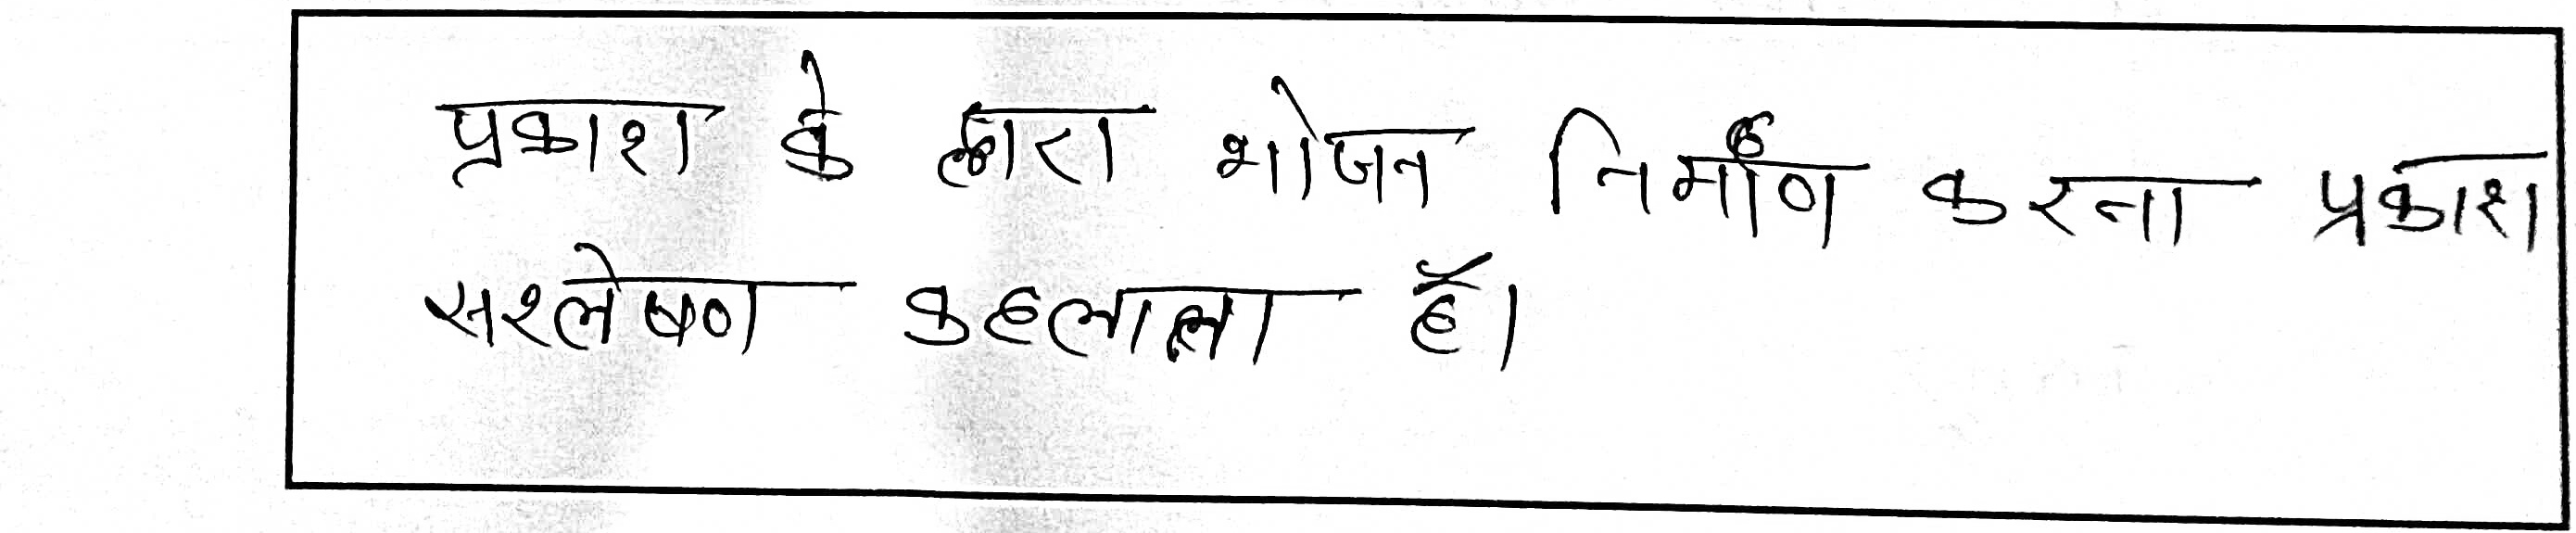 प्रकाश के द्वारा भोजन निर्माण करना प्रकाश
सश्लेषण कहलाता है।